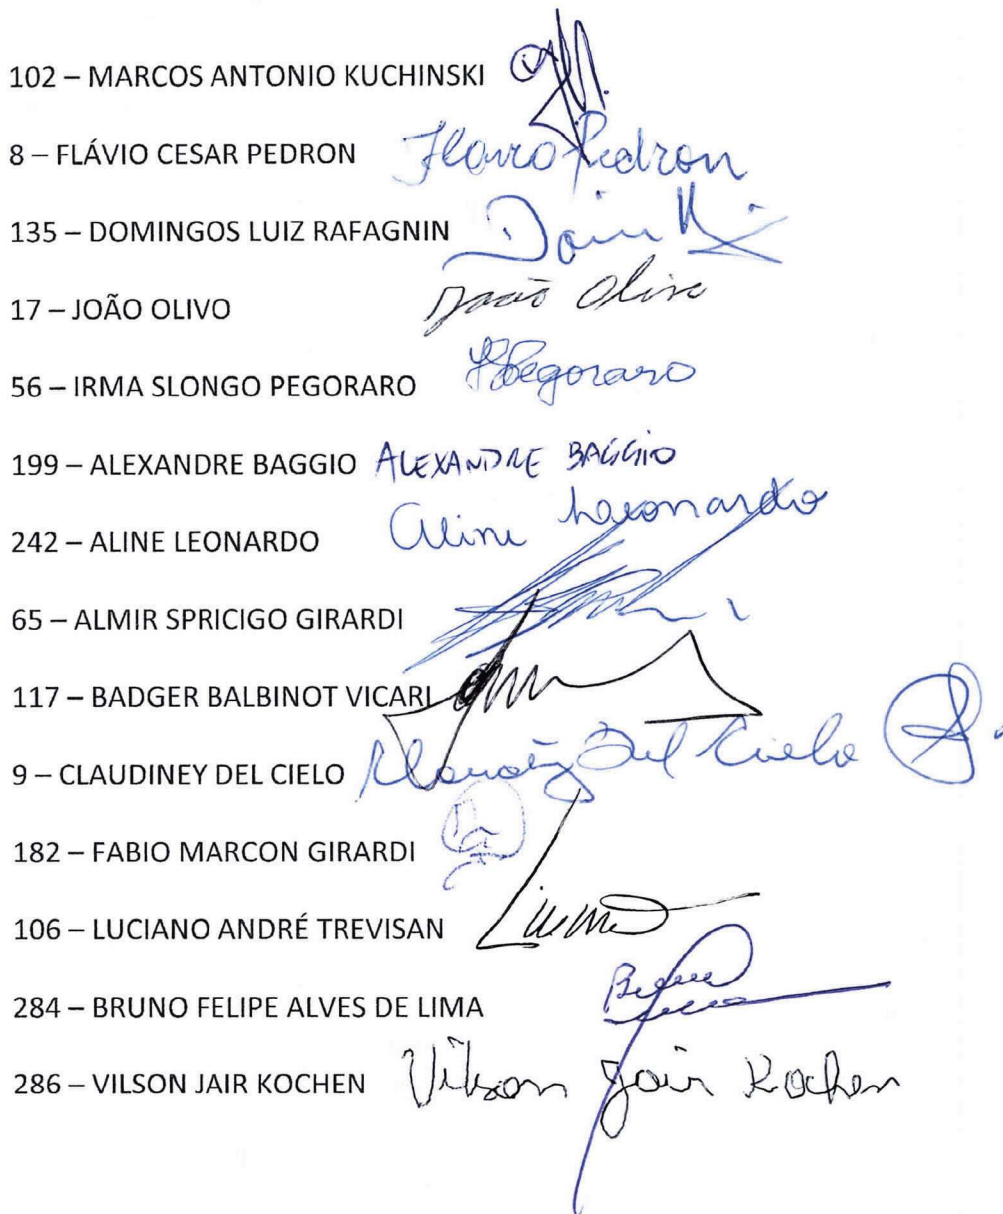 102 – MARCOS ANTONIO KUCHINSKI
8 – FLÁVIO CESAR PEDRON Flavio Pedron
135 – DOMINGOS LUIZ RAFAGNIN
17 – JOÃO OLIVO João Olivo
56 – IRMA SLONGO PEGORARO Pegoraro
199 – ALEXANDRE BAGGIO ALEXANDRE BAGGIO
242 – ALINE LEONARDO Aline Leonardo
65 – ALMIR SPRICIGO GIRARDI
117 – BADGER BALBINOT VICARI
9 – CLAUDINEY DEL CIELO Claudiney Del Cielo
182 – FABIO MARCON GIRARDI
106 – LUCIANO ANDRÉ TREVISAN
284 – BRUNO FELIPE ALVES DE LIMA
286 – VILSON JAIR KOCHEN Vilson Jair Kochen